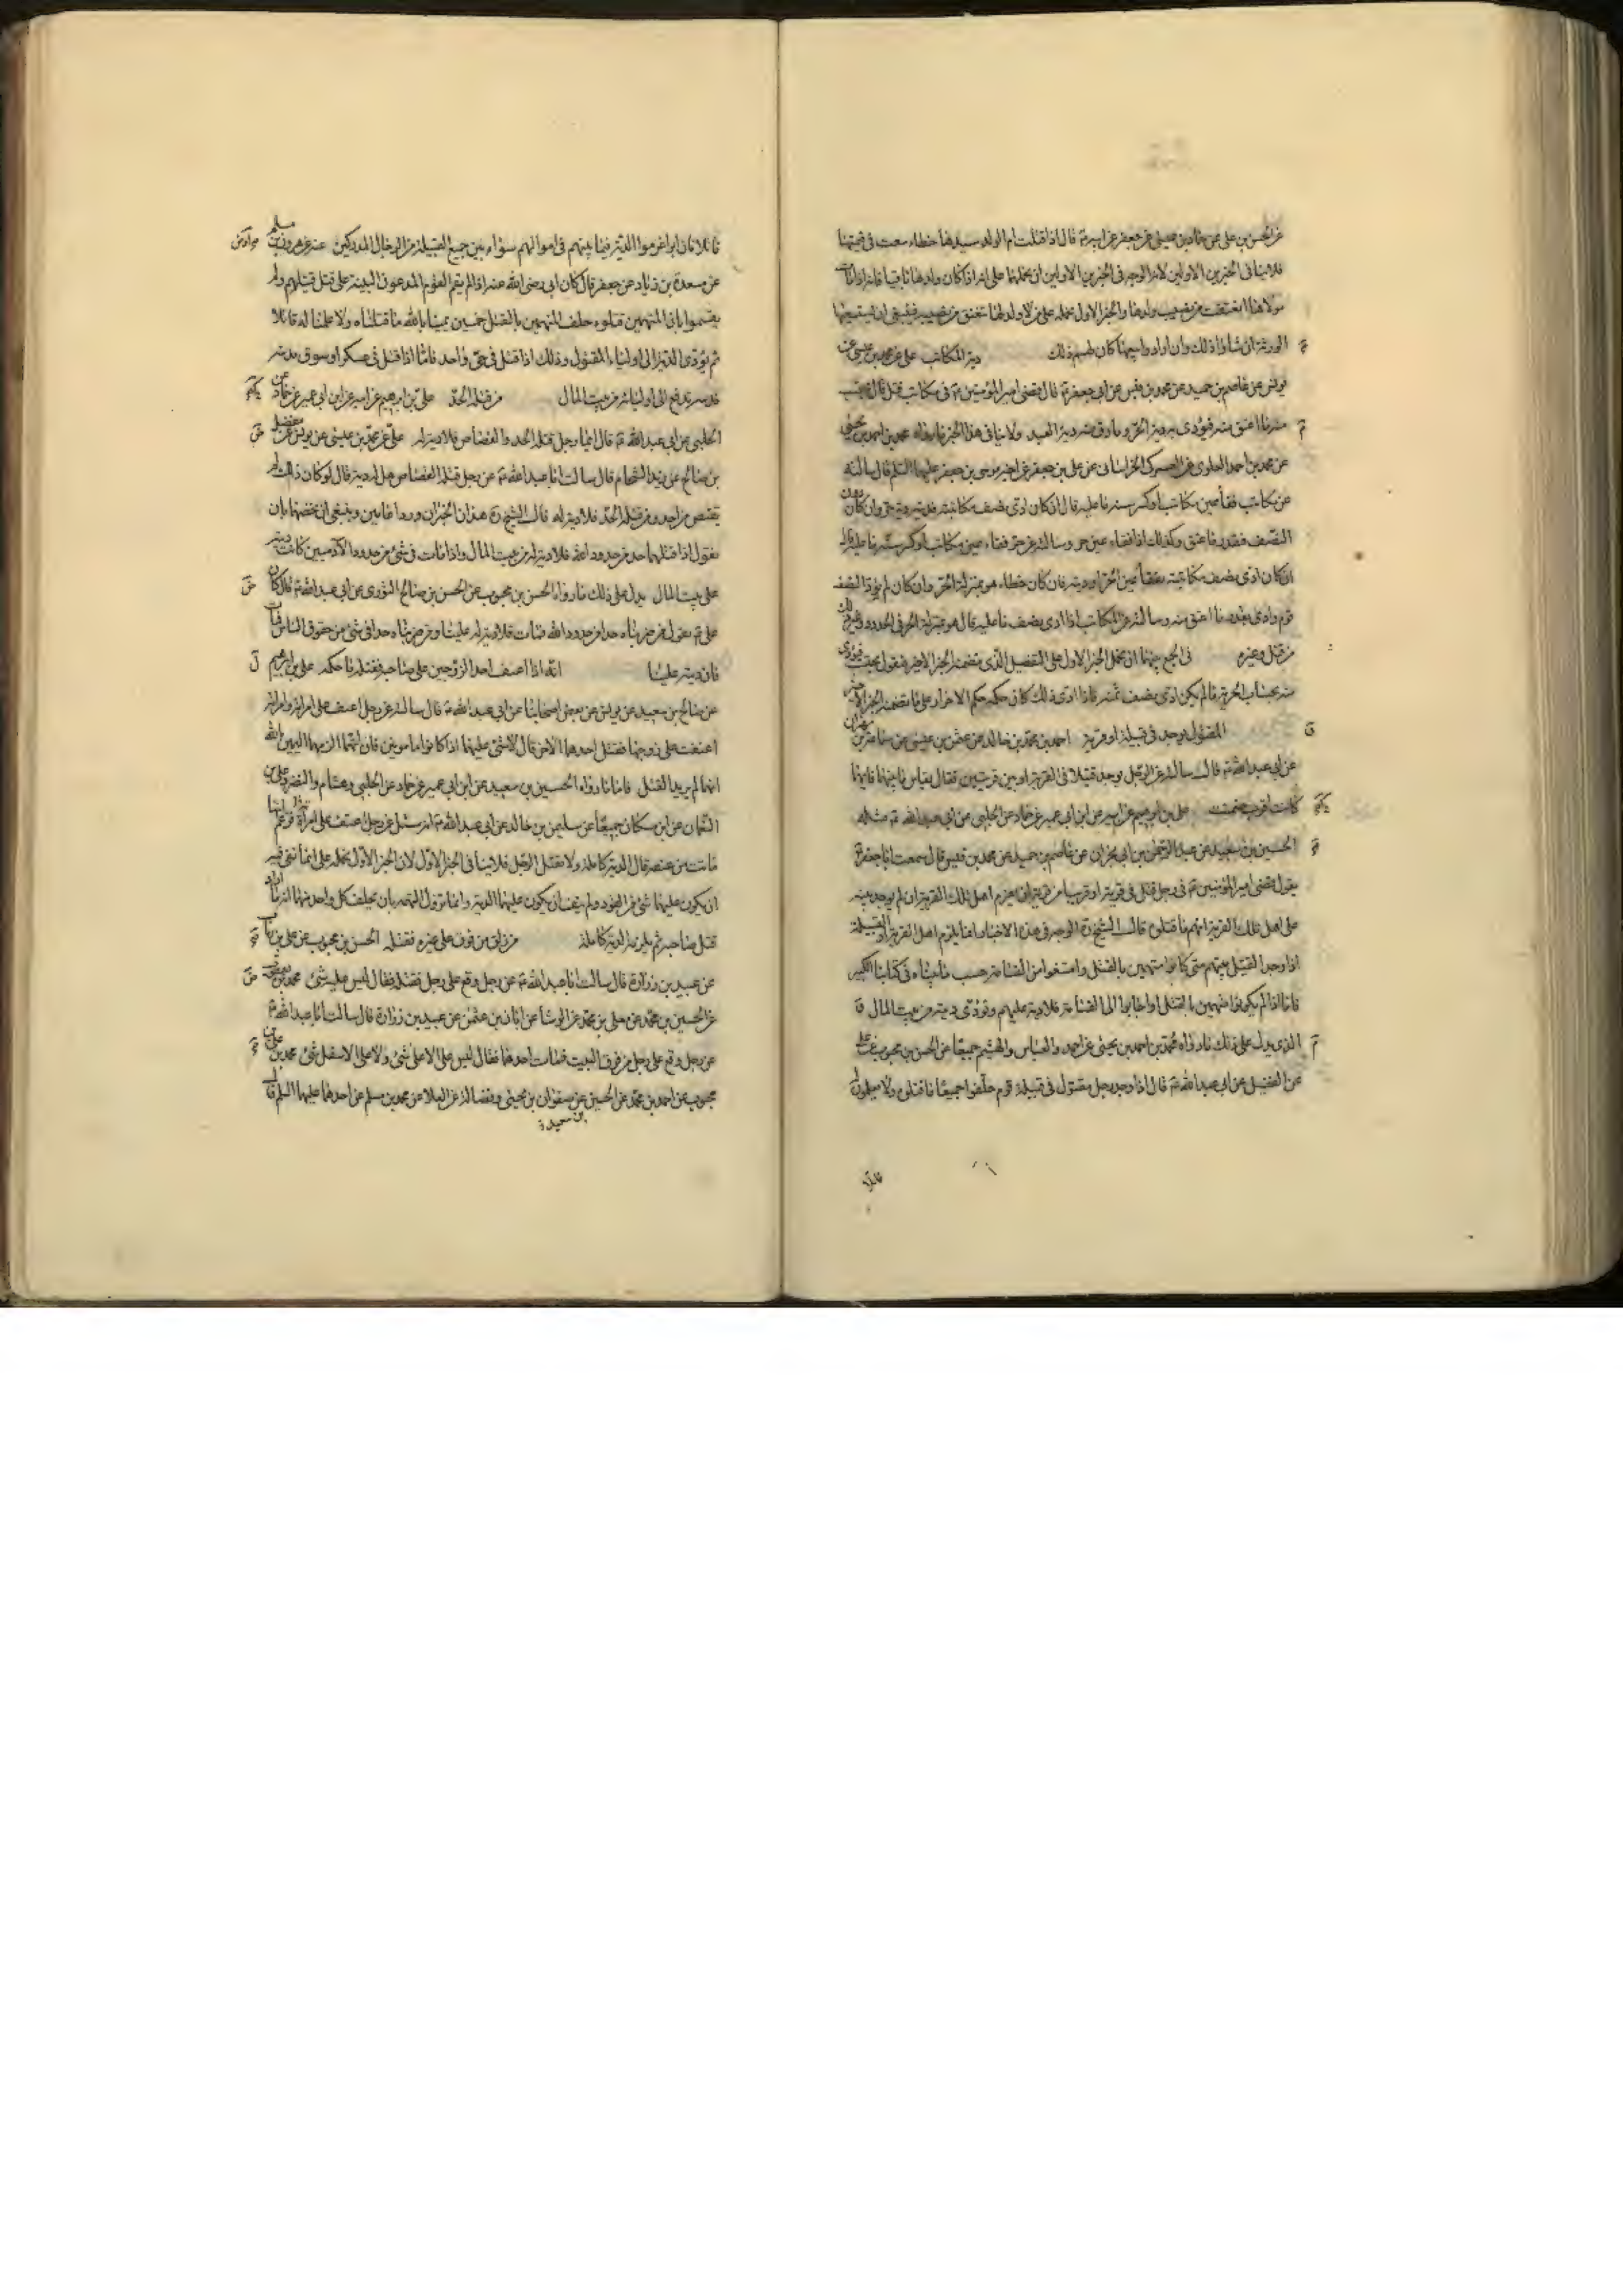 عن الحسن بن علي عن حماد بن عيسى عن جعفر عن ابيه ع قال اذا قتلت ام الولد سيدها خطاء سعت في قيمتها
فلا ينافي الخبرين الاولين لان الوجه في الخبرين الاولين ان نحملهما على انه اذا كان ولدها باقيا فانه اذا مات
مولاها انعتقت من نصيب ولدها والخبر الاول نحمله على من لا ولد لها تنعتق من نصيبه فينبغي ان يستبيعها
الورثة ان شاؤا ذلك وان ارادوا بيعها كان لهم ذلك دية المكاتب علي عن محمد بن عيسى عن
يونس عن عاصم بن حميد عن محمد بن قيس عن ابي جعفر ع قال قضى امير المؤمنين ع في مكاتب قتل قال يحسب
منه ما اعتق منه فيؤدى به دية الحر وما رق منه دية العبد ولا ينافي هذا الخبر ما رواه محمد بن احمد بن يحيى
عن محمد بن احمد العلوي عن العمركي الخراساني عن علي بن جعفر عن اخيه موسى بن جعفر عليهما السلم قال سالته
عن مكاتب فقأ عين مكاتب او كسر سنه ما عليه قال ان كان ادى نصف مكاتبته فديته دية حر وان كان دون
النصف فبقدر ما عتق وكذلك اذا فقاء عين حر وسالته عن حر فقاء عين مكاتب او كسر سنه ما عليه قال
ان كان ادى نصف مكاتبته يفقأ عين الحر او ديته فان كان خطاء هو بمنزلة الحر وان كان لم يؤد النصف
قوم وادى بقدر ما اعتق منه وسالته عن المكاتب اذا ادى نصف ما عليه قال هو بمنزلة الحر في الحدود وغير ذلك
من قتل وغيره في الجمع بينهما ان نحمل الخبر الاول على التفصيل الذي تضمنه الخبر الاخير فنقول يحسب فيودى
منه بحساب الحرية ما لم يكن ادى نصف ثمنه فاذا ادى ذلك كان حكمه حكم الاحرار على ما تضمنه الخبر الاخير
المقتول يوجد في قبيلة او قرية احمد بن محمد بن خالد عن عثمن بن عيسى عن سماعة بن مهران
عن ابي عبد الله ع قال سالته عن الرجل يوجد قتيلا في القرية او بين قريتين فقال يقاس ما بينهما فايهما
كانت اقرب ضمنت علي بن ابرهيم عن ابيه عن ابن ابي عمير عن حماد عن الحلبي عن ابي عبد الله ع مثله
الحسين بن سعيد عن عبد الرحمن بن ابي نجران عن عاصم بن حميد عن محمد بن قيس قال سمعت ابا جعفر ع
يقول قضى امير المؤمنين ع في رجل قتل في قرية او قريبا من قرية ان يغرم اهل تلك القرية ان لم يوجد بينة
على اهل تلك القرية انهم ما قتلوه قال الشيخ ره الوجه في هذه الاخبار انما يلزم اهل القرية او القبيلة
اذا وجد القتيل بينهم متى كانوا متهمين بالقتل وامتنعوا من القسامة حسب ما بيناه في كتابنا الكبير
فاما اذا لم يكونوا متهمين بالقتل او اجابوا الى القسامة فلا دية عليهم وتؤدى ديته من بيت المال
الذي يدل على ذلك ما رواه محمد بن احمد بن يحيى عن احمد والعباس والهيثم جميعا عن الحسن بن محبوب عن علي
عن الفضيل عن ابي عبد الله ع قال اذا وجد رجل مقتول في قبيلة قوم حلفوا جميعا ما قتلوه ولا يعلمون له
قاتلا
قاتلا فان ابوا غرموا الدية فيما بينهم في اموالهم سواء بين جميع القبيلة من الرجال المدركين عنه عن هرون بن مسلم
عن مسعدة بن زياد عن جعفر قال كان ابي رضى الله عنه اذا لم يقم القوم المدعون البينة على قتل قتيلهم ولم
يقسموا بان المتهمين قتلوه حلف المتهمين بالقتل خمسين يمينا بالله ما قتلناه ولا علمنا له قاتلا
ثم يؤدى الدية الى اولياء المقتول وذلك اذا قتل في حي واحد فاما اذا قتل في عسكر او سوق مدينة
فديته تدفع الى اوليائه من بيت المال من قتله الحد علي بن ابرهيم عن ابيه عن ابن ابي عمير عن حماد عن
الحلبي عن ابي عبد الله ع قال ايما رجل قتله الحد والقصاص فلا دية له علي عن محمد بن عيسى عن يونس عن مفضل
بن صالح عن زيد الشحام قال سالت ابا عبد الله ع عن رجل قتله القصاص هل له دية قال لو كان ذلك لم
يقتص من احد ومن قتله الحد فلا دية له قال الشيخ ره هذان الخبران وردا عامين وينبغي ان نخصهما بان
نقول اذا قتلهما حد من حدود الله فلا دية له من بيت المال واذا مات في شئ من حدود الآدميين كانت ديته
على بيت المال يدل على ذلك ما رواه الحسن بن محبوب عن الحسن بن صالح الثوري عن ابي عبد الله ع قال كان
علي ع يقول من ضربناه حدا من حدود الله فمات فلا دية له علينا ومن ضربناه حدا في شئ من حقوق الناس فمات
فان ديته علينا انه اذا اعنف احد الزوجين على صاحبه فقتله ما حكمه علي بن ابرهيم
عن صالح بن سعيد عن يونس عن بعض اصحابنا عن ابي عبد الله ع قال سالته عن رجل اعنف على امراته وامراة
اعنفت على زوجها فقتل احدهما الاخر قال لا شئ عليهما اذا كانا مامونين فان اتهما الزمهما اليمين بالله
انهما لم يريدا القتل فاما ما رواه الحسين بن سعيد عن ابن ابي عمير عن حماد عن الحلبي وهشام والنضر وعلي بن
النعمان عن ابن مسكان جميعا عن سليمن بن خالد عن ابي عبد الله ع انه سئل عن رجل اعنف على امراة فزعم انها
ماتت من عنفه قال الدية كاملة ولا يقتل الرجل فلا ينافي الخبر الاول لان الخبر الاول نحمله على انما نفي فيه
ان يكون عليهما شئ من القود ولم ينف ان يكون عليهما الدية وانما تزول التهمة بان يحلف كل واحد منهما انه ما اراد
قتل صاحبه ثم يلزمه الدية كاملة من زلق من فوق على غيره فقتله الحسن بن محبوب عن علي بن رئاب
عن عبيد بن زرارة قال سالت ابا عبد الله ع عن رجل وقع على رجل فقتله فقال ليس عليه شئ محمد بن يعقوب
عن الحسين بن محمد عن معلى بن محمد عن الوشا عن ابان بن عثمن عن عبيد بن زرارة قال سالت ابا عبد الله ع
عن رجل وقع على رجل من فوق البيت فمات احدهما فقال ليس على الاعلى شئ ولا على الاسفل شئ محمد بن علي بن
محبوب عن احمد بن محمد عن الحسين عن صفوان بن يحيى وفضالة عن العلا عن محمد بن مسلم عن احدهما عليهما السلم قال
بن سعيد